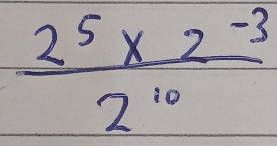 2⁵ × 2⁻³
2¹⁰